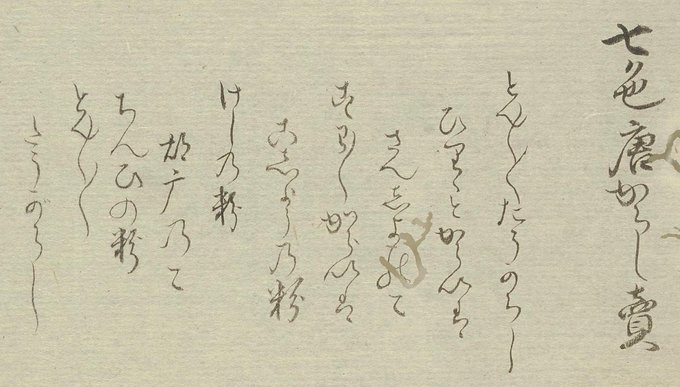 七色唐からし賣
とん〱たうからし
ひりゝとからいは
さんしよのこ
すは〱からいは
こしようの粉
けしの粉
胡广のこ
ちんひの粉
とん〱
たうがらし